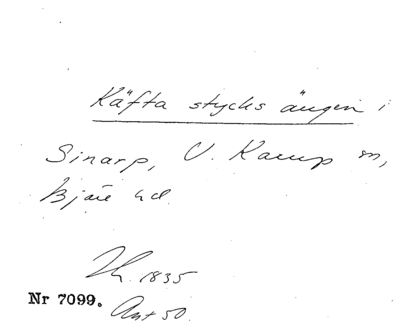 Käfta stycks ängen i
Sinarp, V. Karup sn,
Bjäre hd
Lh. 1835
Nr 7099.
Ant 50